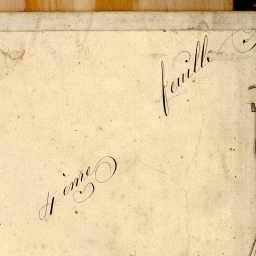 4ème feuille